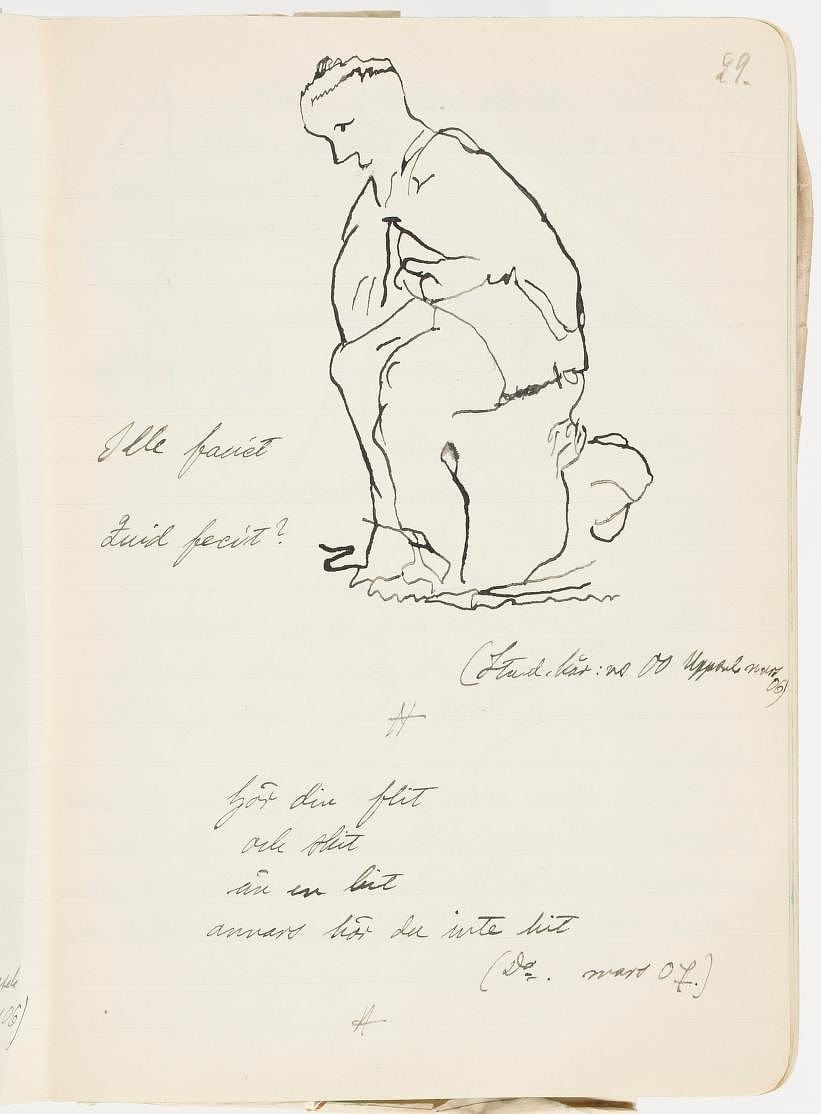 29.
Ille faciet
Quid fecit?
(Stud. kår:ns 00 Uppsala mars
06)
H
Gör din flit
och skit
än en bit
annars hör du inte hit
(Do. mars 07.)
H
06)